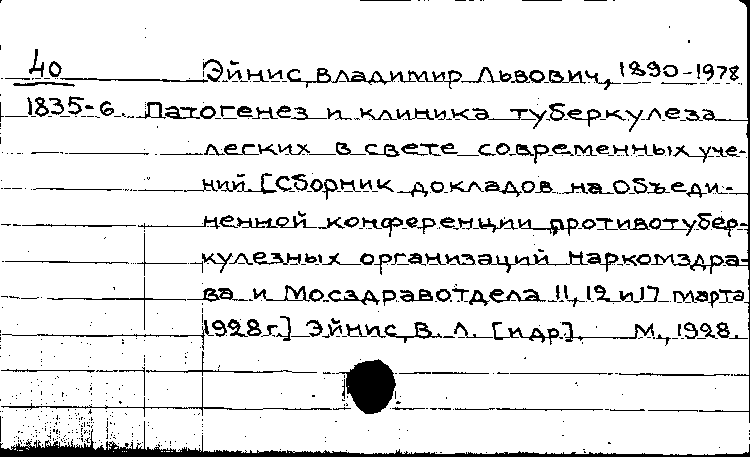 40 Эйнис, Владимир Львович, 1890-1978
1835-6. Патогенез и клиника туберкулеза
легких в свете современных уче-
ний. [Сборник докладов на Объеди-
ненной конференции противотубер-
кулезных организаций Наркомздра-
ва и Мосздравотдела 11, 12 и 17 марта
1928 г.] Эйнис, В. Л. [и др]. М., 1928.